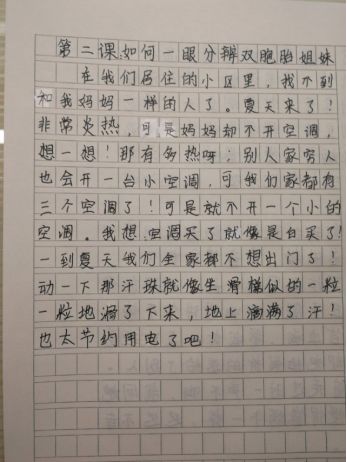 第二课如何一眼分辨双胞胎姐妹
在我们居住的小区里，找不到
和我妈妈一样的人了。夏天来了！
非常炎热，可是妈妈却不开空调，
想一想！那有多热呀；别人家穷人
也会开一台小空调，可我们家都有
三个空调了！可是就不开一个小的
空调。我想空调买了就像是白买了！
一到夏天我们全家都不想出门了！
动一下那汗珠就像坐滑梯似的一粒
一粒地滑了下来，地上滴满了汗！
也太节约用电了吧！